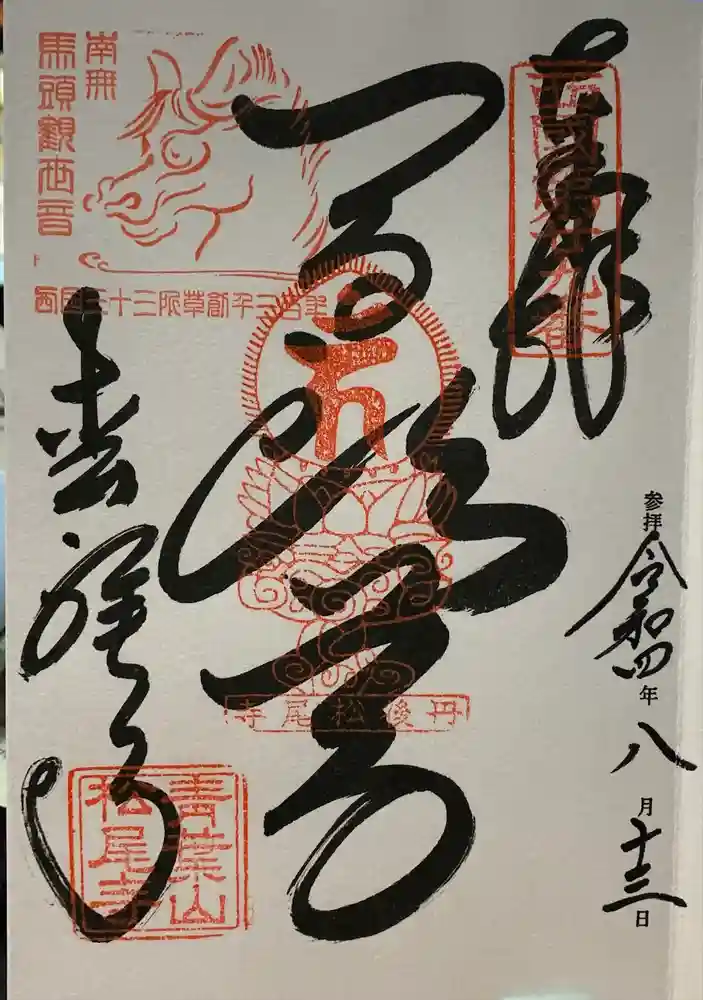 奉拝
西國第廿九番
参拝 令和四年八月十三日
南無
馬頭觀世音
西国三十三所草創千三百年
丹後松尾寺
青葉山
松尾寺
枩尾寺